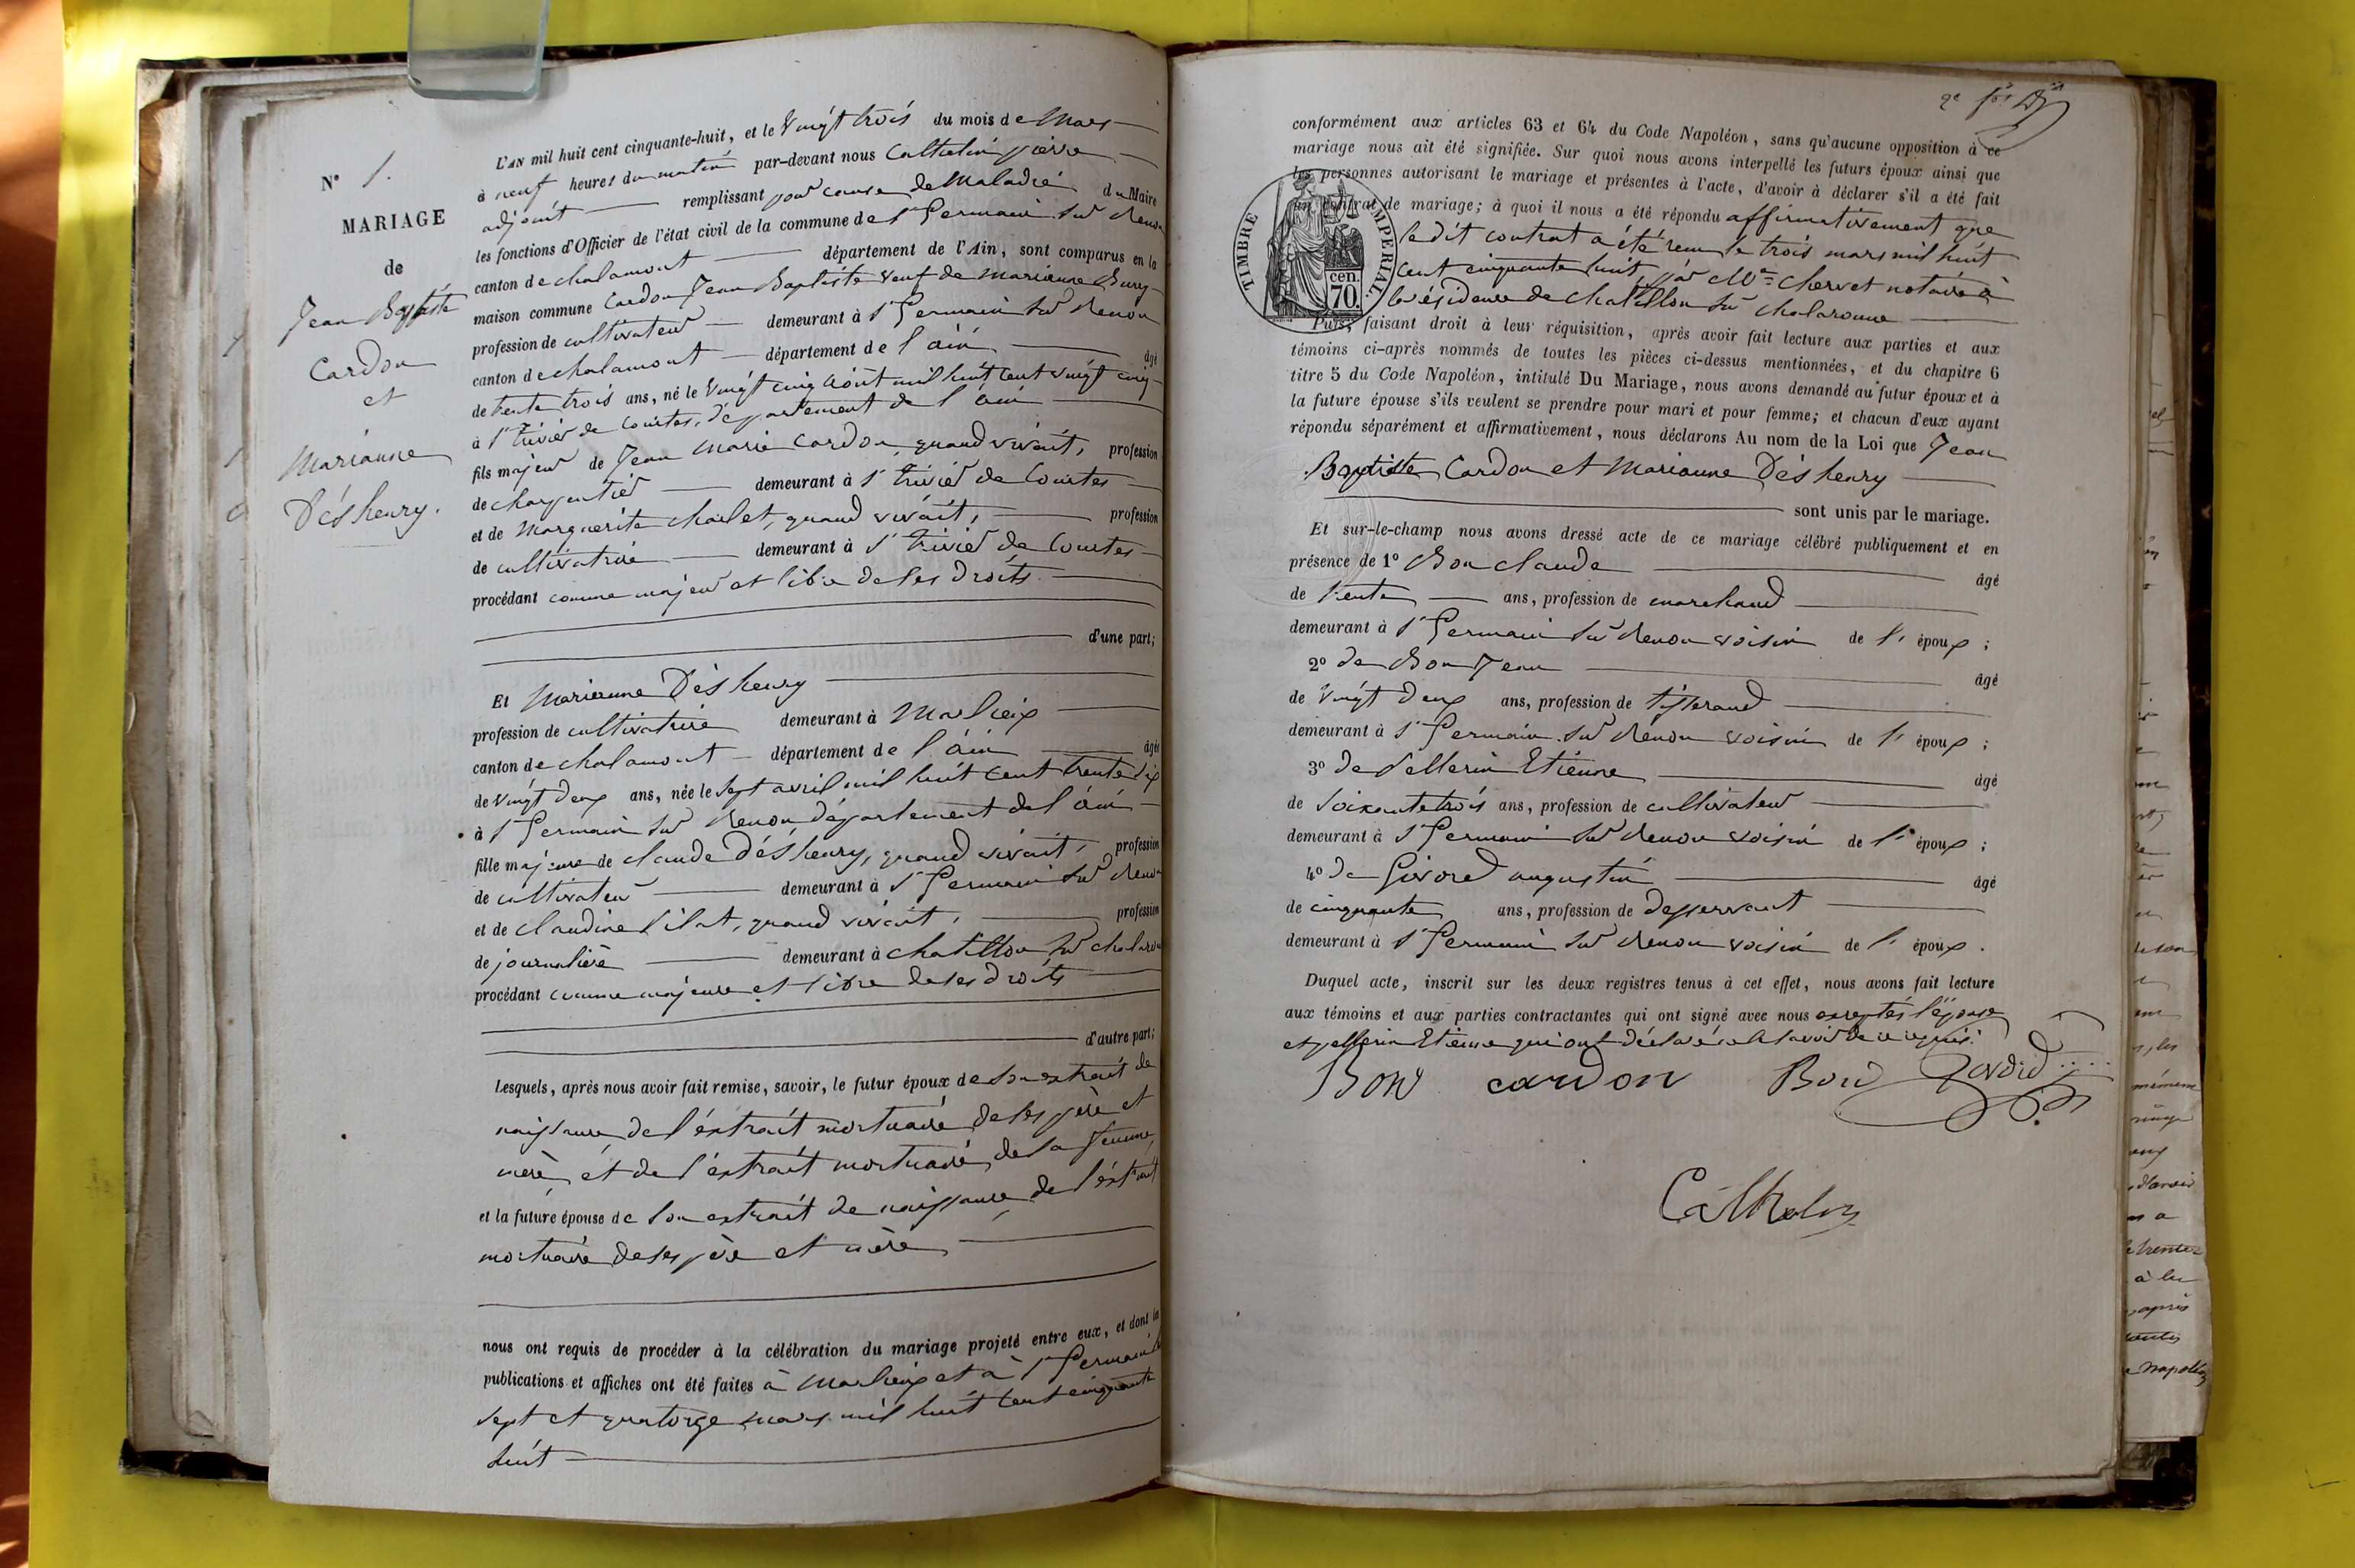 N° 1.
MARIAGE
de
Jean Baptiste
Cardon
et
Marianne
Déshenry.
L'AN mil huit cent cinquante-huit, et le vingt trois du mois de Mars
à neuf heures du matin par-devant nous Cathelin pierre
adjoint remplissant pour cause de Maladie du Maire
les fonctions d'Officier de l'état civil de la commune de St Germain sur Renon
canton de chalamont département de l'Ain, sont comparus en la
maison commune Cardon Jean Baptiste veuf de marianne Burry
profession de cultivateur demeurant à St Germain sur Renon
canton de chalamont département de l'ain âgé
de trente trois ans, né le vingt cinq août mil huit cent vingt cinq
à St trivier de Courtes, département de l'ain
fils majeur de Jean marie Cardon, quand vivait, profession
de charpentier demeurant à St trivier de Courtes
et de Marguerite charlet, quand vivait, profession
de cultivatrice demeurant à St trivier de Courtes
procédant comme majeur et libre de ses droits
d'une part;
Et Marianne Déshenry
profession de cultivatrice demeurant à Marlieix
canton de chalamont département de l'ain âgée
de vingt deux ans, née le sept avril mil huit cent trente six
à St Germain sur Renon département de l'ain
fille majeure de claude Déshenry, quand vivait, profession
de cultivateur demeurant à St Germain sur Renon
et de claudine Pilat, quand vivait, profession
de journalière demeurant à chatillon sur chalaronne
procédant comme majeure et libre de ses droits
d'autre part;
Lesquels, après nous avoir fait remise, savoir, le futur époux de son extrait de
naissance, de l'extrait mortuaire de ses père et
mère, et de l'extrait mortuaire, de sa femme,
et la future épouse de son extrait de naissance, de l'extrait
mortuaire de ses père et mère,
nous ont requis de procéder à la célébration du mariage projeté entre eux, et dont les
publications et affiches ont été faites à Marlieix et à St Germain
sept et quatorze mars mil huit cent cinquante
huit
conformément aux articles 63 et 64 du Code Napoléon, sans qu'aucune opposition à ce
mariage nous ait été signifiée. Sur quoi nous avons interpellé les futurs époux ainsi que
les personnes autorisant le mariage et présentes à l'acte, d'avoir à déclarer s'il a été fait
un contrat de mariage; à quoi il nous a été répondu affirmativement que
ledit contrat a été reçu le trois mars mil huit
cent cinquante huit, par Me Chervet notaire à
la résidence de chatillon sur chalaronne
TIMBRE IMPERIAL.
cen.
70.
Puis, faisant droit à leur réquisition, après avoir fait lecture aux parties et aux
témoins ci-après nommés de toutes les pièces ci-dessus mentionnées, et du chapitre 6
titre 5 du Code Napoléon, intitulé Du Mariage, nous avons demandé au futur époux et à
la future épouse s'ils veulent se prendre pour mari et pour femme; et chacun d'eux ayant
répondu séparément et affirmativement, nous déclarons Au nom de la Loi que Jean
Baptiste Cardon et Marianne Déshenry
sont unis par le mariage.
Et sur-le-champ nous avons dressé acte de ce mariage célébré publiquement et en
présence de 1° Bon claude âgé
de trente ans, profession de marchand
demeurant à St Germain sur Renon voisin de l'époux;
2° de Bon Jean âgé
de vingt deux ans, profession de tisserand
demeurant à St Germain sur Renon voisin de l'époux;
3° de Pellerin Etienne âgé
de soixante trois ans, profession de cultivateur
demeurant à St Germain sur Renon voisin de l'époux;
4° de Givord augustin âgé
de cinquante ans, profession de desservant
demeurant à St Germain sur Renon voisin de l'époux.
Duquel acte, inscrit sur les deux registres tenus à cet effet, nous avons fait lecture
aux témoins et aux parties contractantes qui ont signé avec nous exceptés l'épouse
et pellerin Etienne qui ont déclaré ne le savoir de ce requis.
Bon cardon Bon Givord
Cathelin